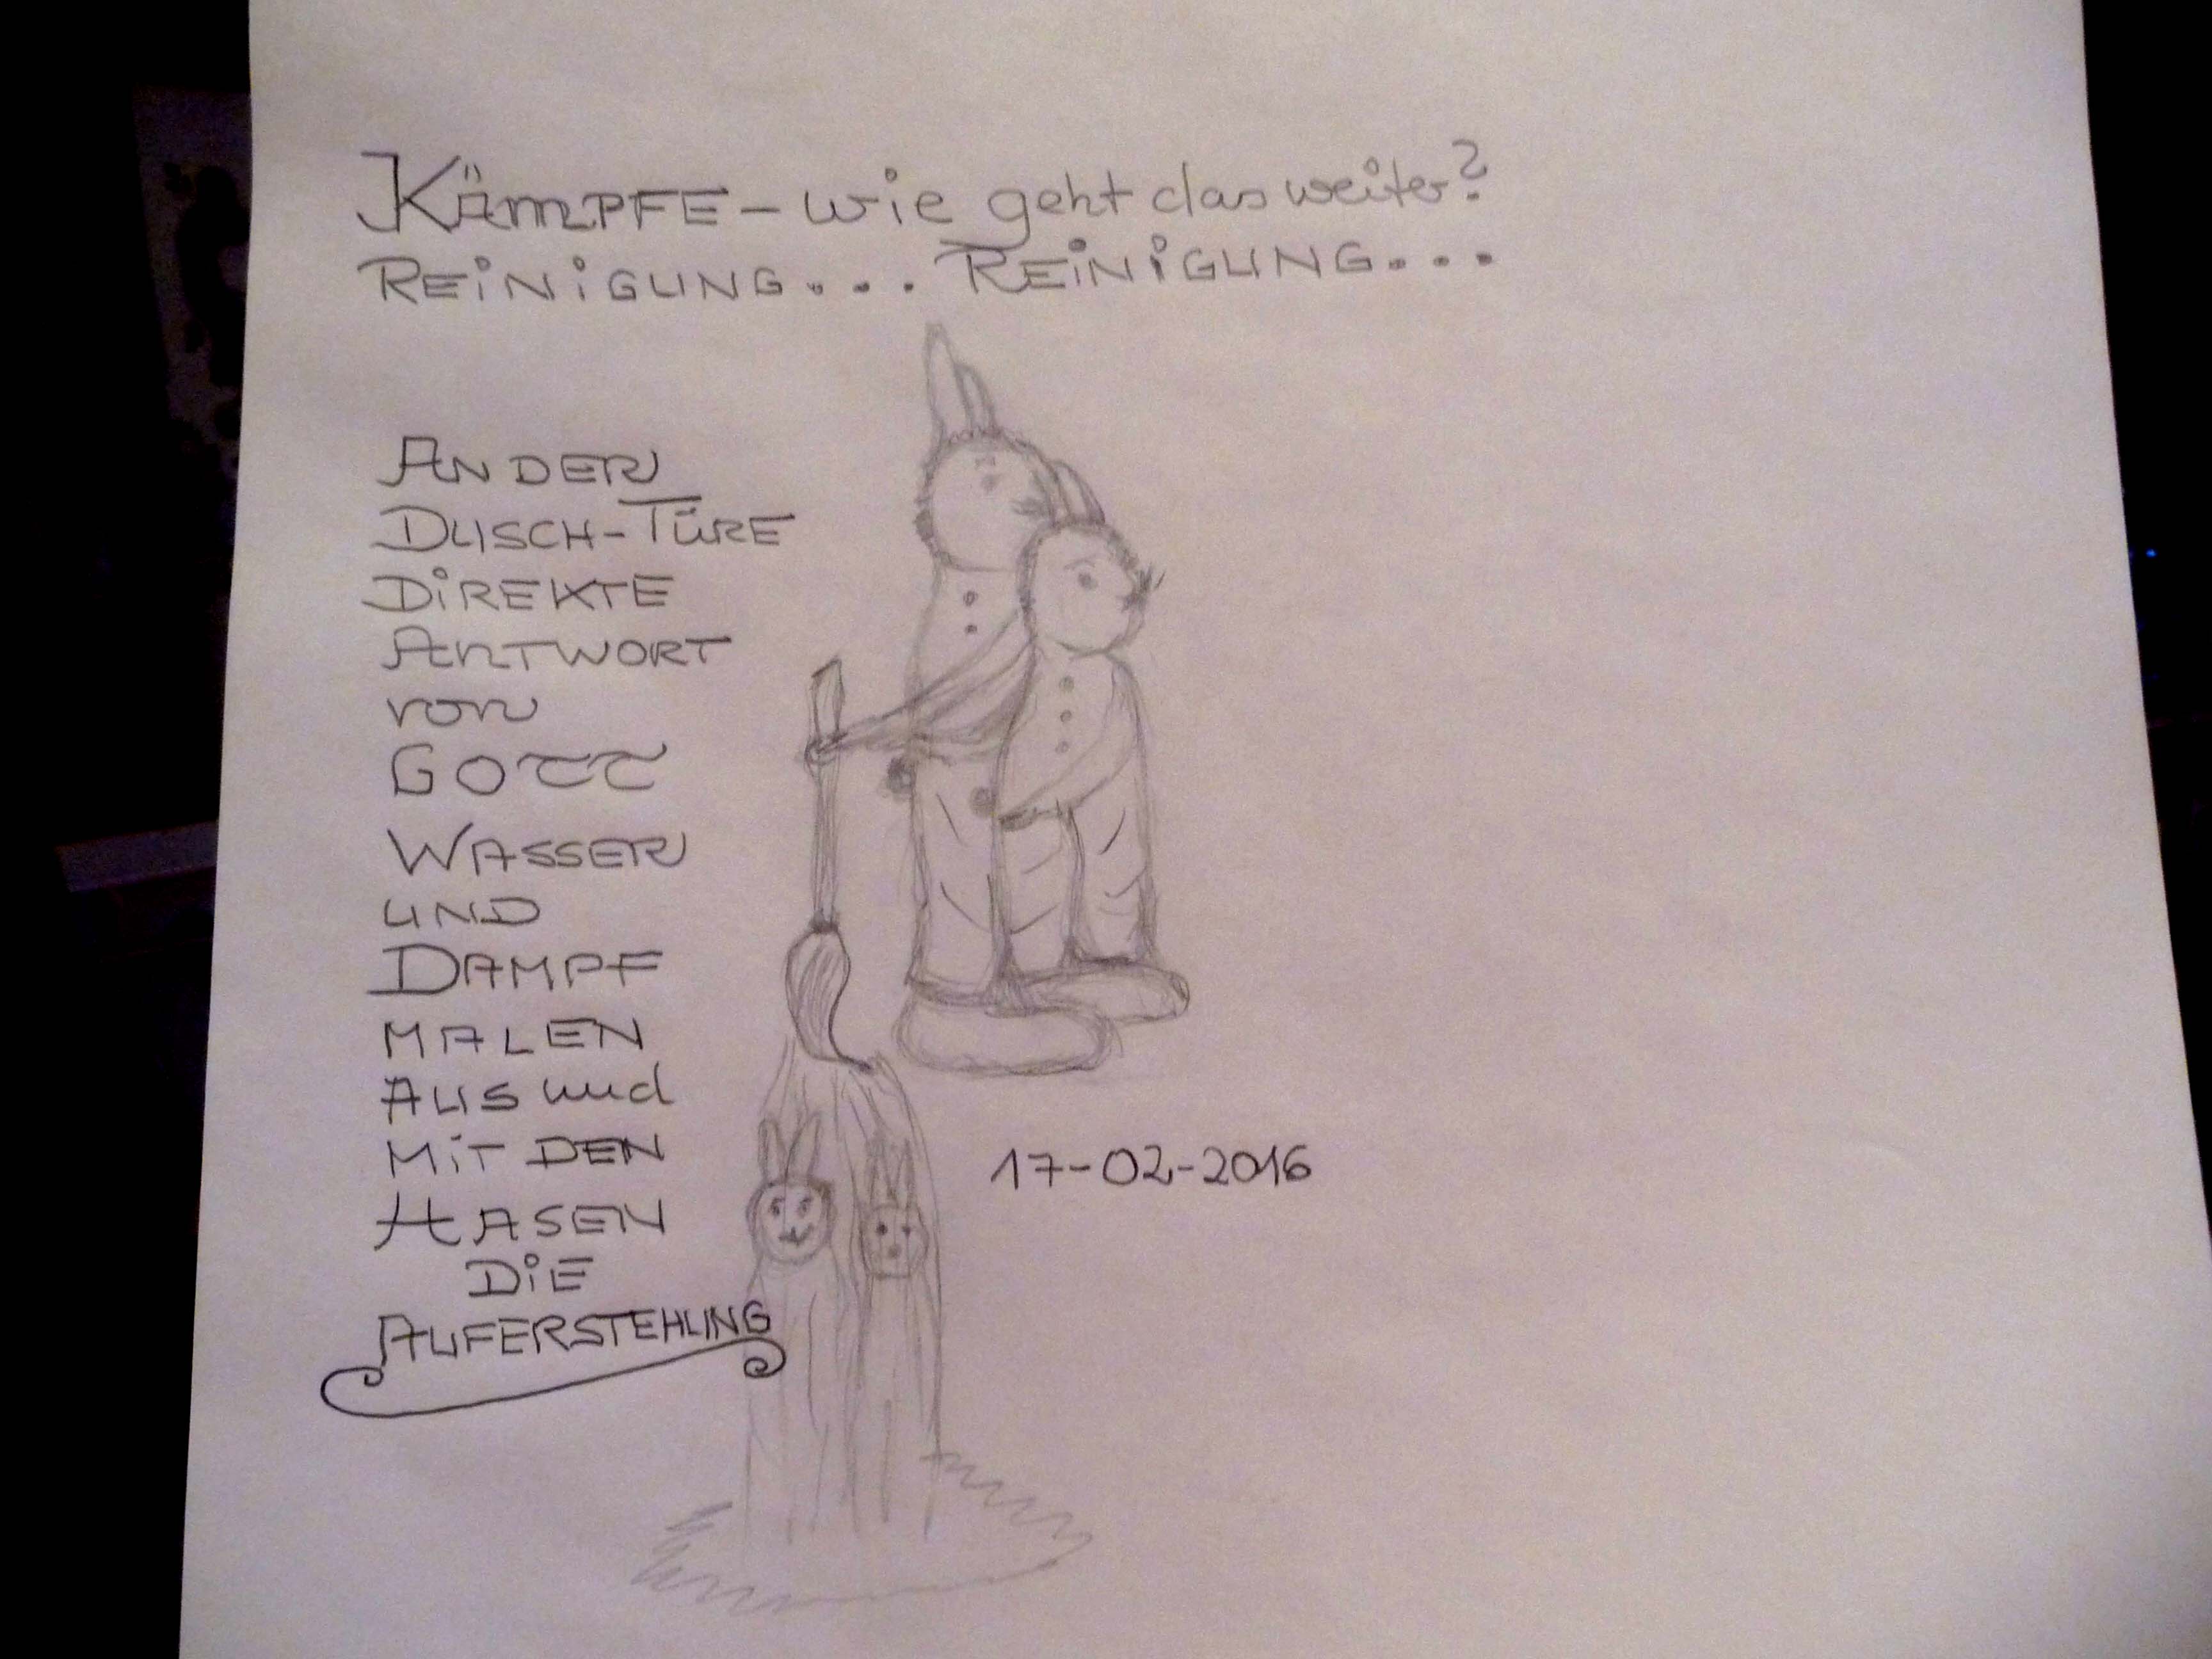 KÄMPFE – wie geht das weiter?
REINIGUNG... REINIGUNG...
AN DER
DUSCH-TÜRE
DIREKTE
ANTWORT
von
GOTT
WASSER
UND
DAMPF
MALEN
AUS und
MIT DEN
HASEN
DIE
AUFERSTEHUNG
17-02-2016